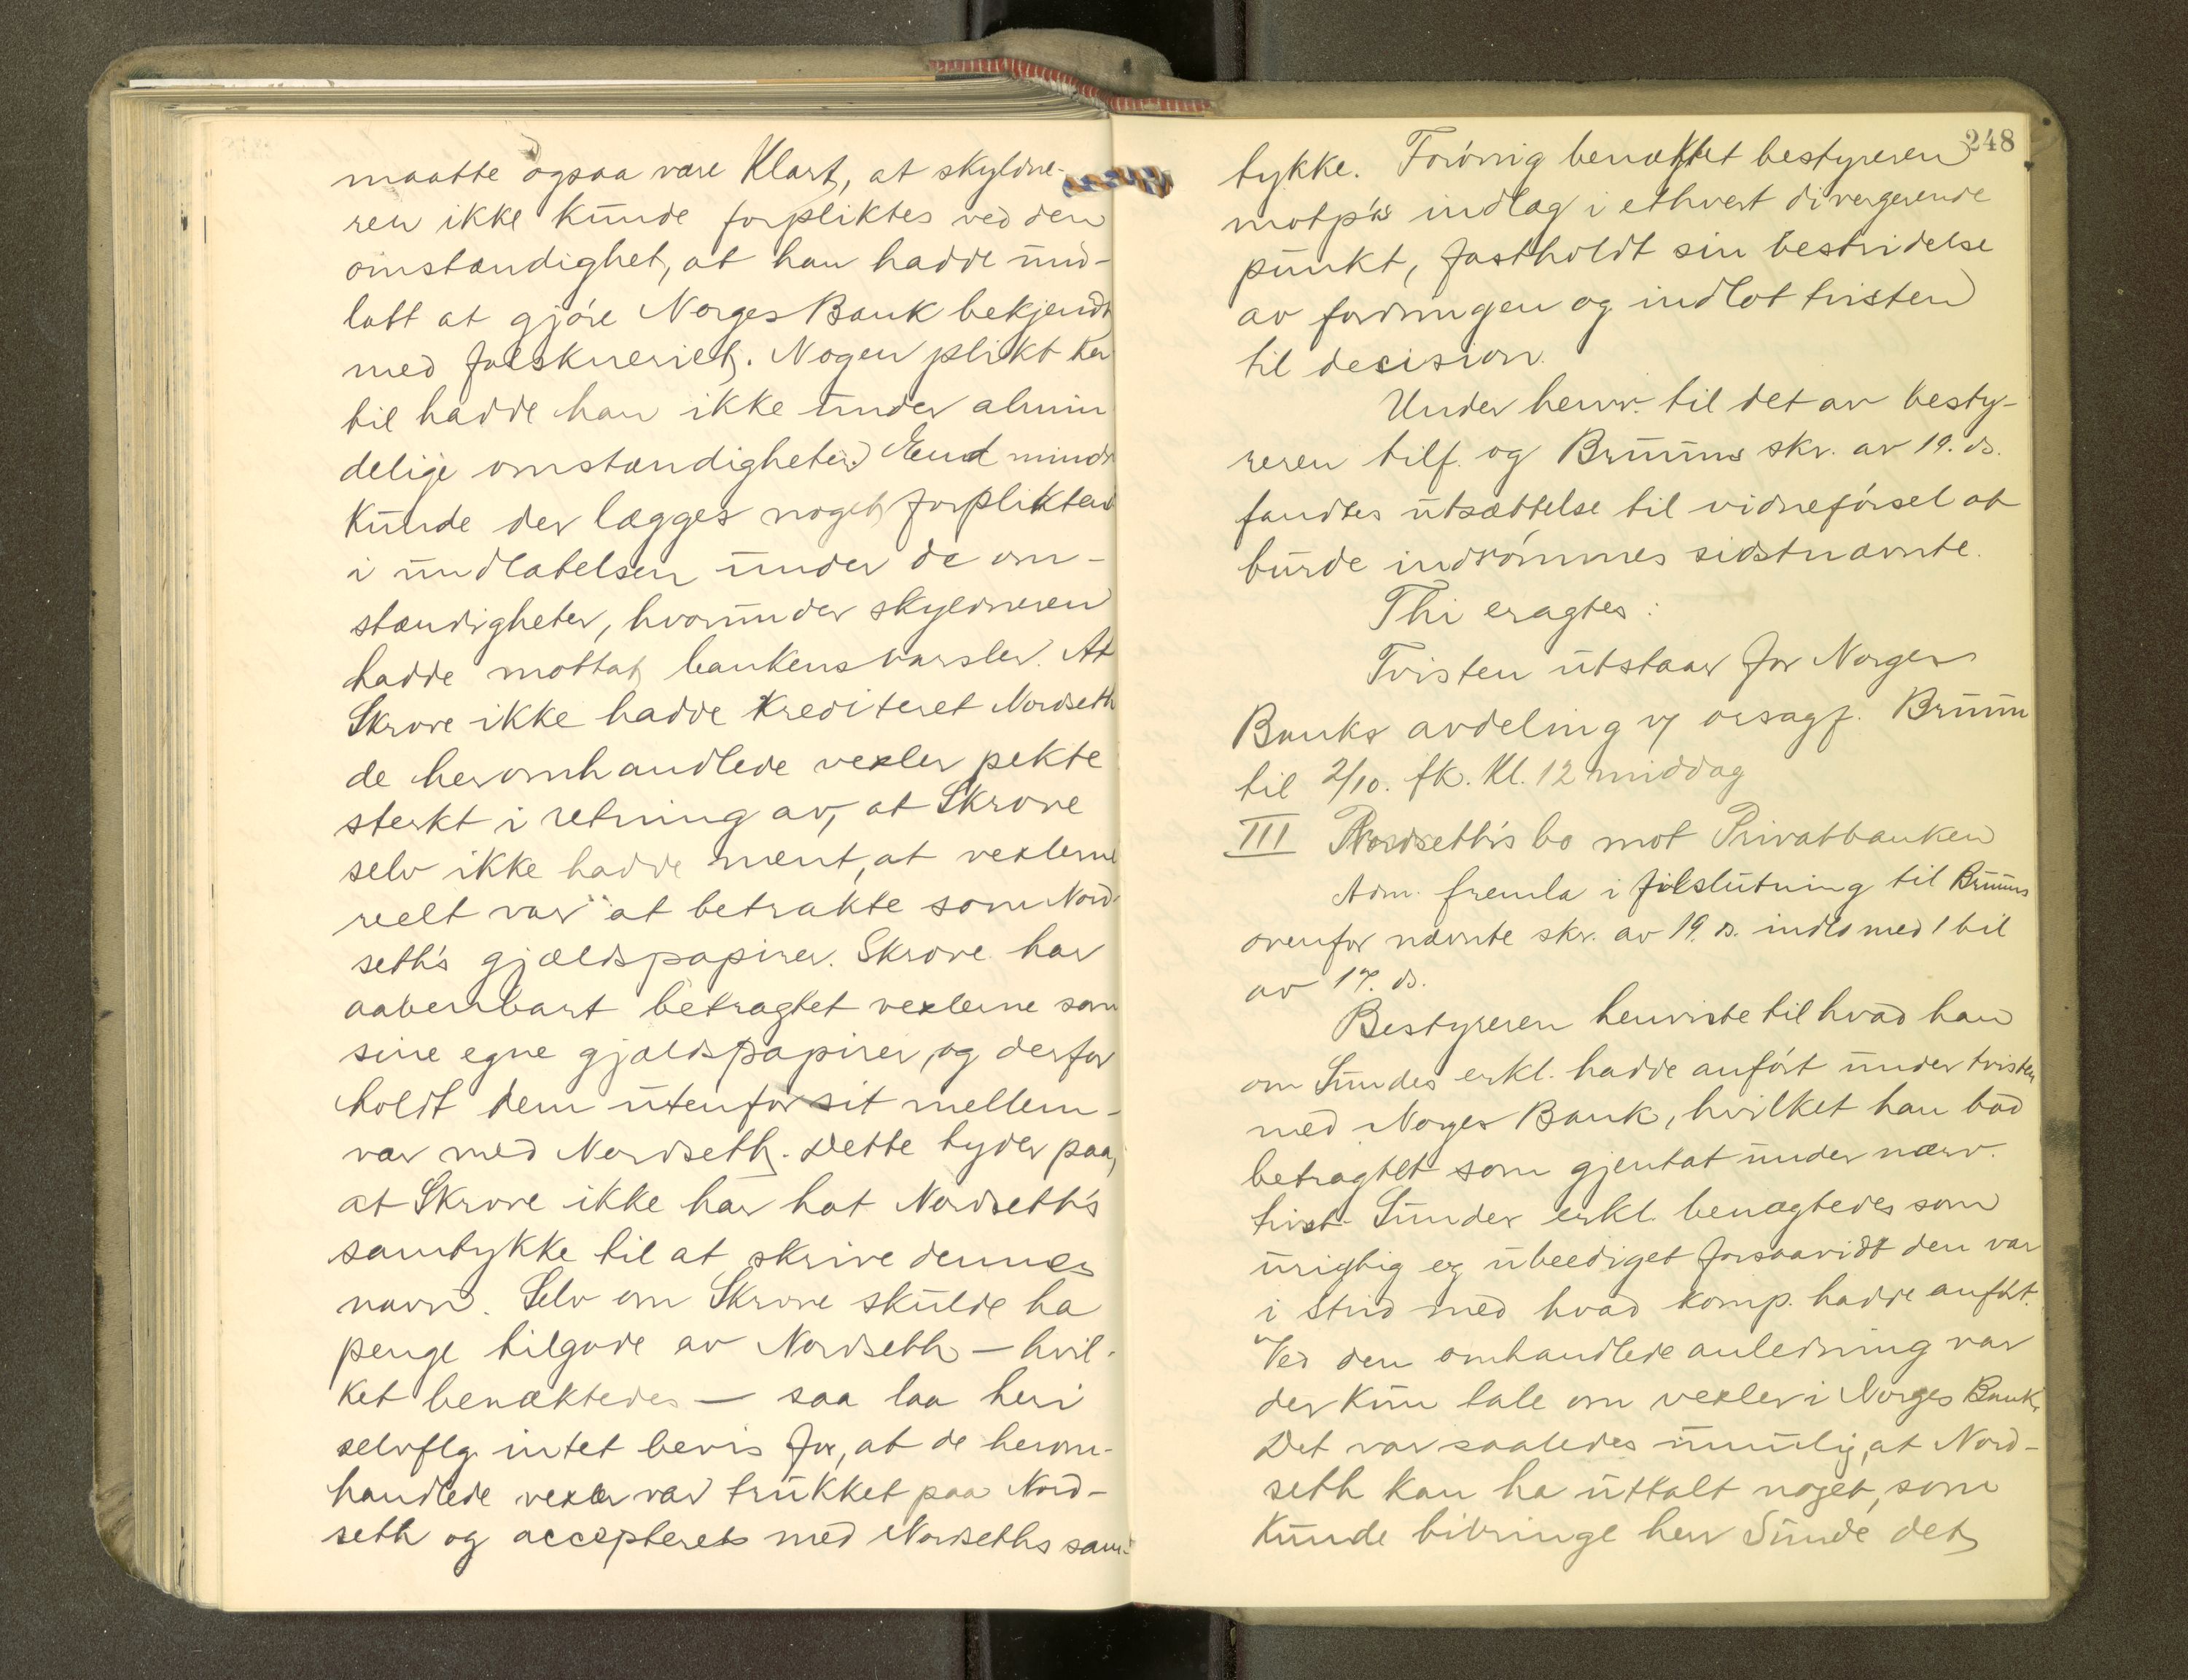 maatte ogsaa være klart, at skyldne-
ren ikke kunde forpliktes ved den
omstændighet, at han hadde und-
latt at gjøre Norges Bank bekjendt
med falskneriet. Nogen plikt der
til hadde han ikke under almin
delige omstændigheter. End mindr
kunde der lægges noget forpliktend
i undlatelsen under de om-
stændigheter, hvorunder skyldneren
hadde mottat bankens varsler. At
Skrove ikke hadde krediteret Nordseth
de heromhandlede vexler pekte
sterkt i retning av, at Skrove
selv ikke hadde ment, at vexlerne
reelt var at betrakte som Nord-
seth's gjældspapirer. Skrove har
aabenbart betragtet vexlerne som
sine egne gjældspapirer, og derfor
holdt dem utenfor sit mellem-
vær med Nordseth. Dette tyder paa,
at Skrove ikke har hat Nordseth's
samtykke til at skrive dennes
navn. Selv om Skrove skulde ha
penge tilgode av Nordseth – hvil-
ket benæktedes – saa laa heri
selvflg. intet bevis for, at de herom-
handlede vexler var trukket paa Nord-
seth og accepteret med Nordseths sam-
248
tykke. Forøvrig benæktet bestyreren
motp's indlæg i ethvert divergerende
punkt, fastholdt sin bestridelse
av fordringen og indlot tvisten
til decision.
Under henv. til det av besty-
reren tilf. og Bruuns skr. av 19. ds.
fandtes utsættelse til vidneførsel at
burde indrømmes sidstnævnte.
Thi eragtes:
Tvisten utstaar for Norges
Banks avdeling v/ orsagf. Bruun
til 2/10. fk. kl. 12 middag
III Nordseth's bo mot Privatbanken
Adm. fremla i tilslutning til Bruuns
ovenfor nævnte skr. av 19. ds. indl. med 1 bil
av 17. ds.
Bestyreren henviste til hvad han
om Sundes erkl. hadde anført under tvisten
med Norges Bank, hvilket han bad
betragtet som gjentat under nærv.
tvist. Sundes erkl. benægtedes som
urigtig og ubeediget forsaavidt den var
i strid med hvad komp. hadde anført.
Ved den omhandlede anledning var
der kun tale om vexler i Norges Bank.
Det var saaledes umulig, at Nord-
seth kan ha uttalt noget, som
kunde bibringe herr Sunde det